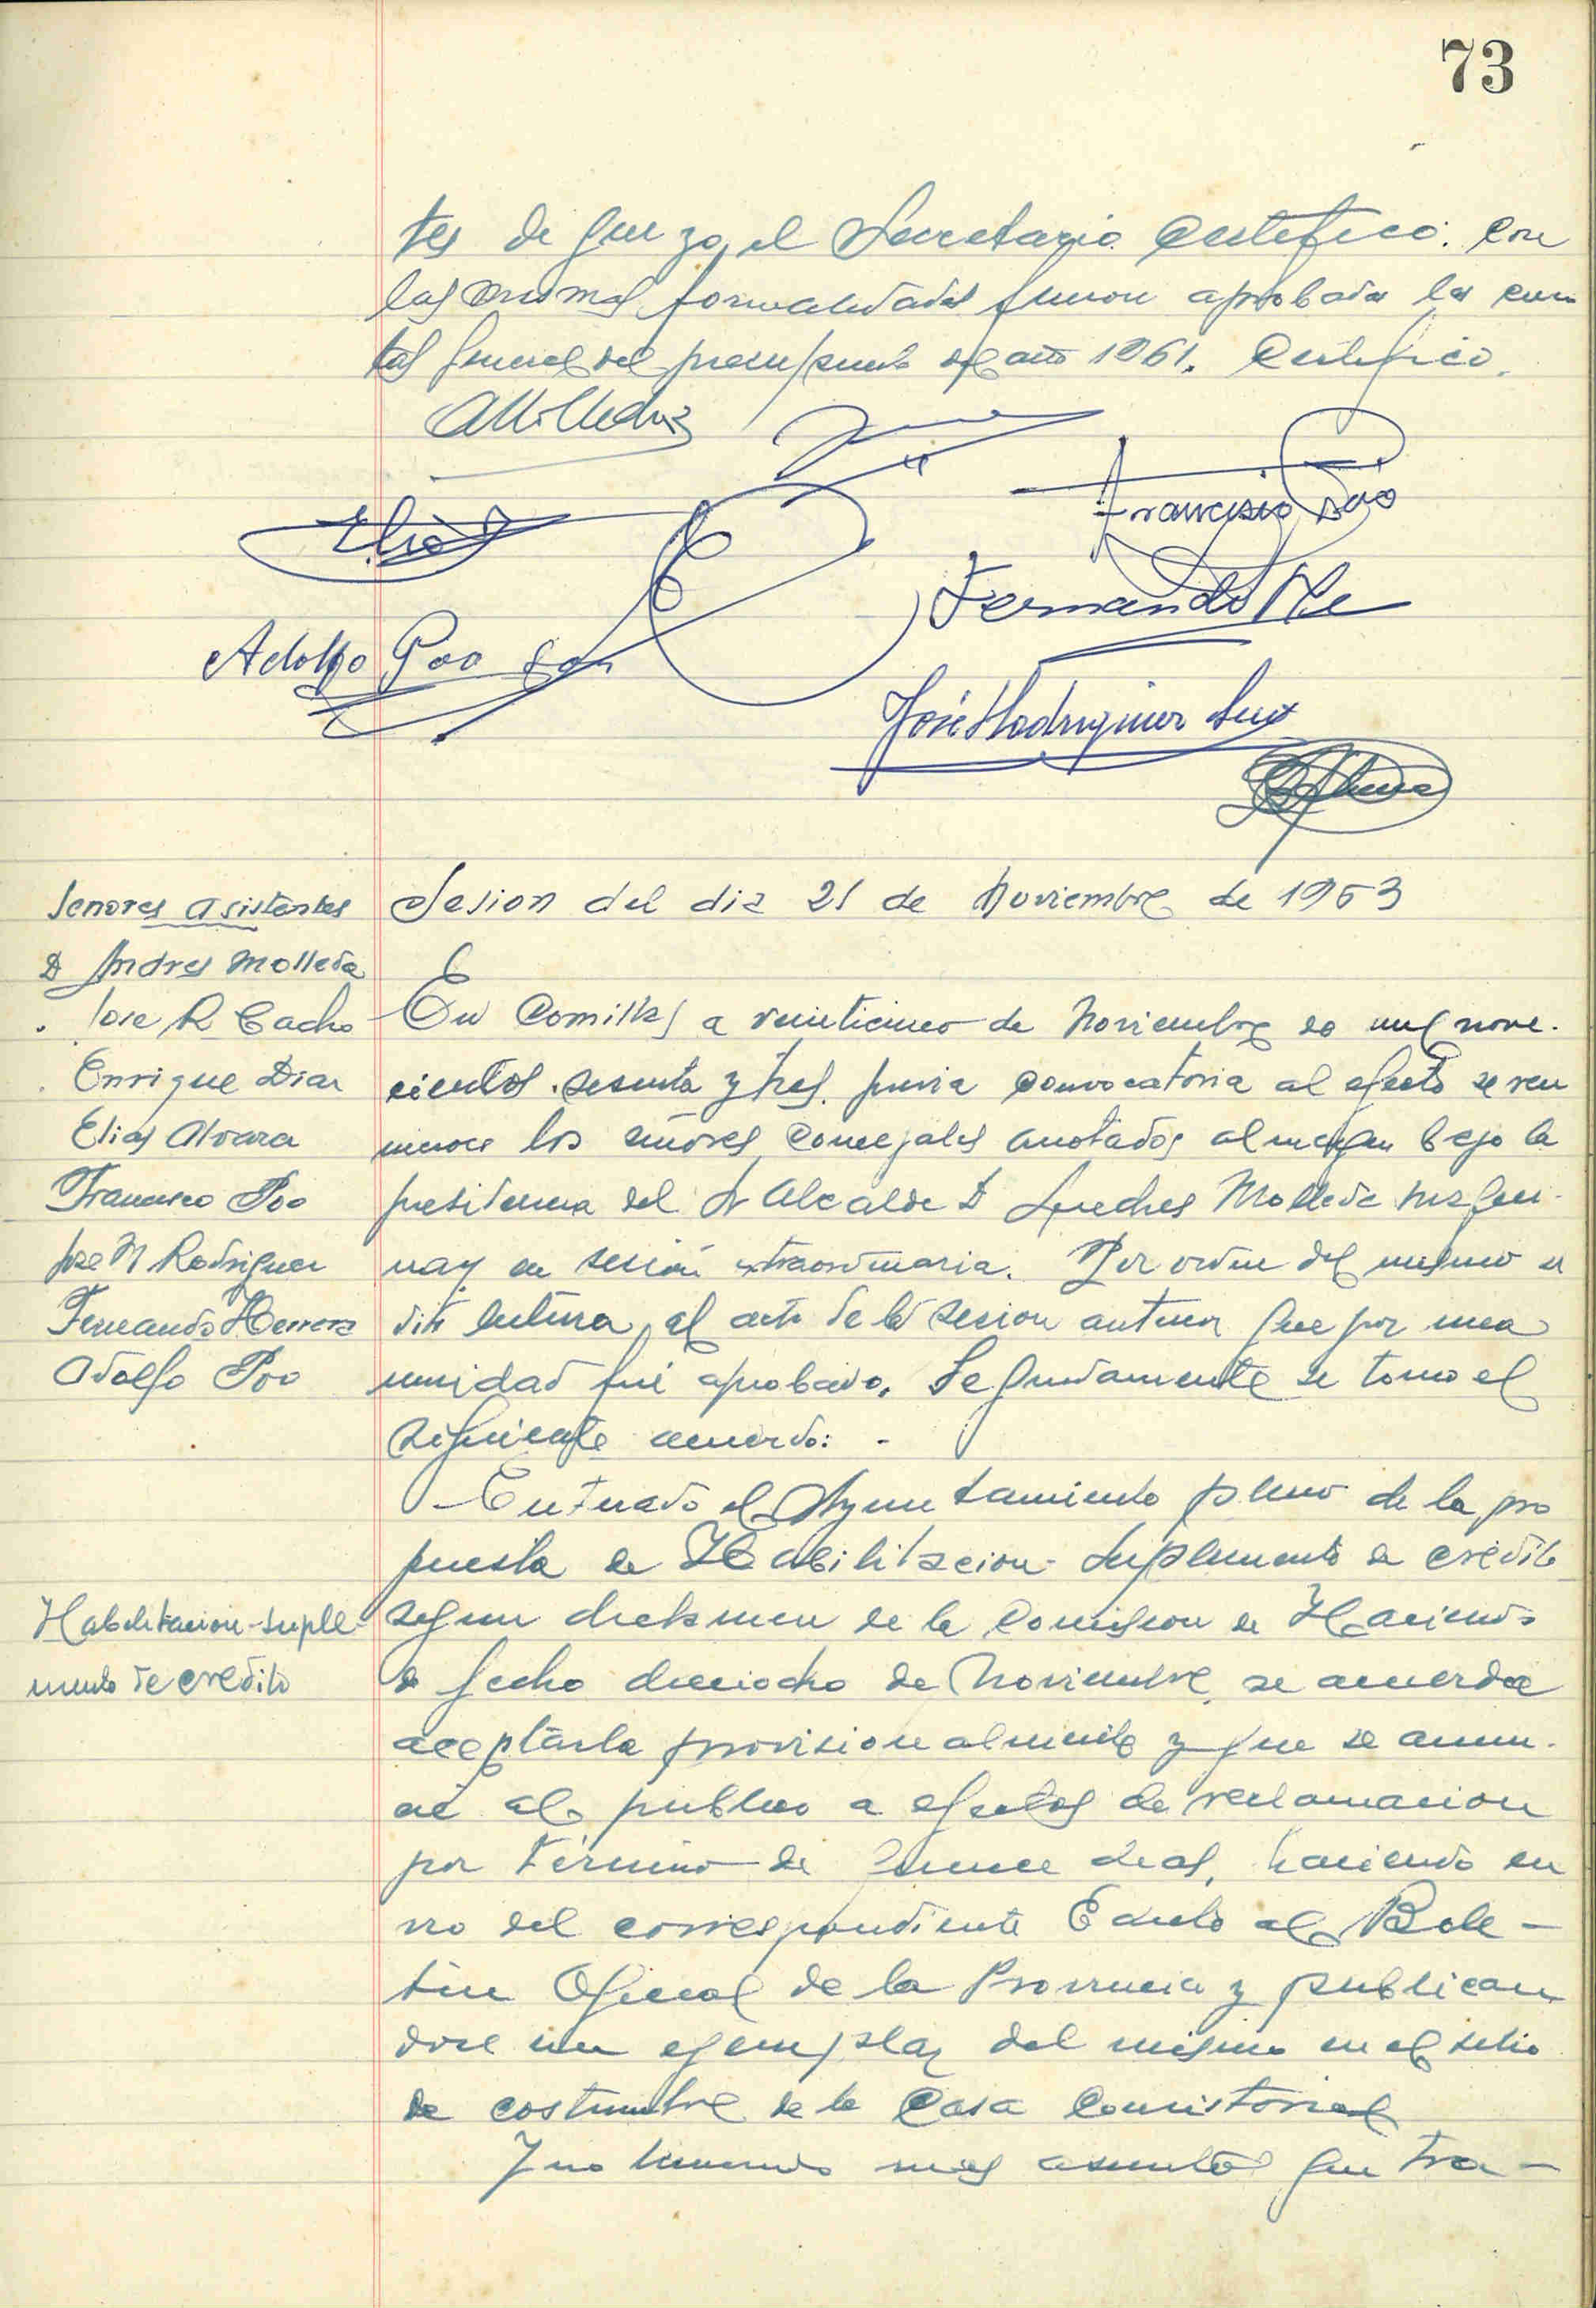 73
tes de que yo, el Secretario Certifico. Con
las mismas formalidades fueron aprobadas las cuen
tas general del presupuesto del año 1961. Certifico.
AMolleda
Elias
Francisco Poo
Fernando He
Adolfo Poo
José M Rodriguez
Señores asistentes
D Andres Molleda
. Jose R Cacho
. Enrique Diaz
Elias Alvara
Francisco Poo
Jose M Rodriguez
Fernando Herrera
Adolfo Poo
Sesion del dia 21 de Noviembre de 1963
En Comillas a veinticinco de Noviembre de mil nove-
cientos sesenta y tres, previa convocatoria al efecto se reu
nieron los señores Concejales anotados al margen bajo la
presidencia del Sr Alcalde D Andres Molleda
en sesión extraordinaria. Por orden del mismo se
dió lectura al acta de la sesion anterior que por una
nimidad fué aprobada. Seguidamente se tomo el
siguiente acuerdo: -
Enterado el Ayuntamiento pleno de la pro
puesta de Habilitacion-Suplemento de credito
Habilitacion-suple
mento de credito
segun dictamen de la Comision de Hacienda
de fecha dieciocho de Noviembre, se acuerda
aceptarla provisionalmente y que se anun-
cie al publico a efectos de reclamacion
por término de quince dias, haciendo en
vio del correspondiente Edicto al Bole-
tin Oficial de la Provincia y publican
dose un ejemplar del mismo en el sitio
de costumbre de la Casa Consistorial
Y no habiendo mas asuntos que tra-